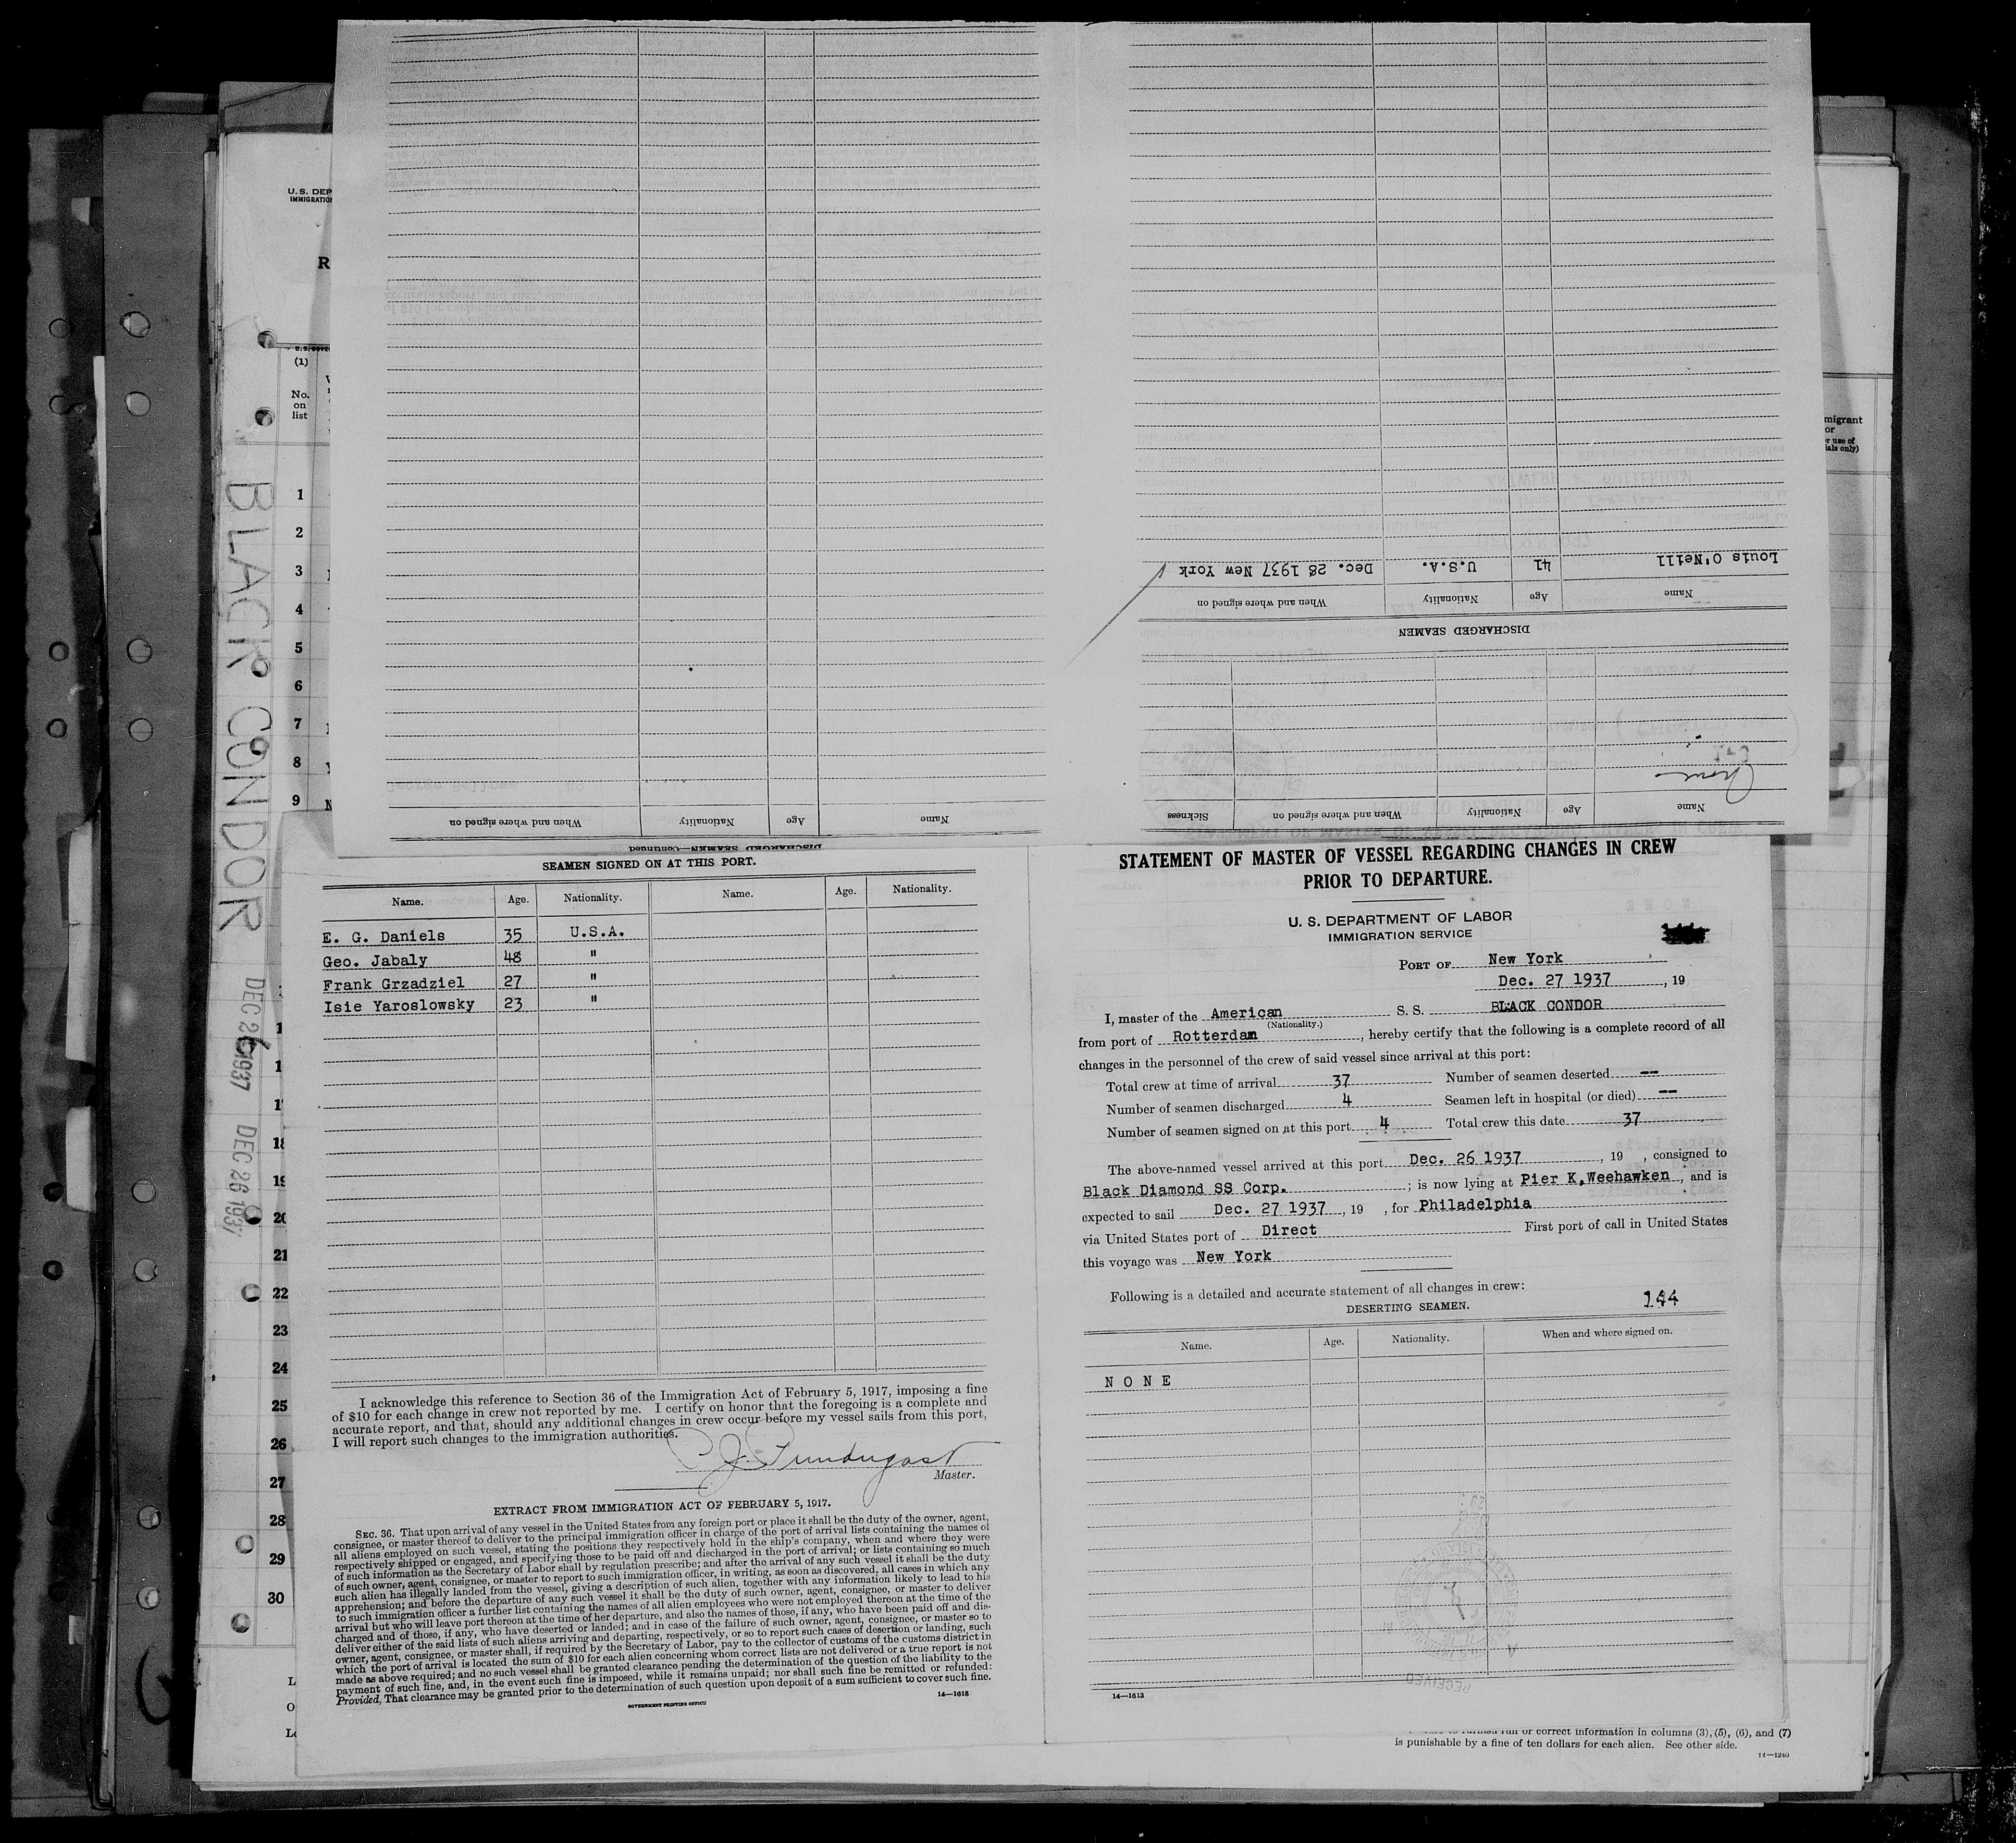 U.S. DEP
IMMIGRATIO
R
U.S. GOVE
(1)
No.
on
list
1
2
3
4
5
6
7
8
9
BLACK CONDOR
DEC 26 1937
DEC 26 1937
18
19
20
21
22
23
24
25
26
27
28
29
30
migrant
or
r use of
ials only)
DISCHARGED SEAMEN—Continued
Name
Age
Nationality
When and where signed on
Name
Age
Nationality
When and where signed on
Sickness
None
DISCHARGED SEAMEN
Name
Age
Nationality
When and where signed on
Louis O'Neill 41 U.S.A. Dec. 28 1937 New York
SEAMEN SIGNED ON AT THIS PORT.
Name. Age. Nationality. Name. Age. Nationality.
E. G. Daniels 35 U.S.A.
Geo. Jabaly 48 "
Frank Grzadziel 27 "
Isie Yaroslowsky 23 "
I acknowledge this reference to Section 36 of the Immigration Act of February 5, 1917, imposing a fine
of $10 for each change in crew not reported by me. I certify on honor that the foregoing is a complete and
accurate report, and that, should any additional changes in crew occur before my vessel sails from this port,
I will report such changes to the immigration authorities.
Master.
EXTRACT FROM IMMIGRATION ACT OF FEBRUARY 5, 1917.
SEC. 36. That upon arrival of any vessel in the United States from any foreign port or place it shall be the duty of the owner, agent,
consignee, or master thereof to deliver to the principal immigration officer in charge of the port of arrival lists containing the names of
all aliens employed on such vessel, stating the positions they respectively hold in the ship's company, when and where they were
respectively shipped or engaged, and specifying those to be paid off and discharged in the port of arrival; or lists containing so much
of such information as the Secretary of Labor shall by regulation prescribe; and after the arrival of any such vessel it shall be the duty
of such owner, agent, consignee, or master to report to such immigration officer, in writing, as soon as discovered, all cases in which any
such alien has illegally landed from the vessel, giving a description of such alien, together with any information likely to lead to his
apprehension; and before the departure of any such vessel it shall be the duty of such owner, agent, consignee, or master to deliver
to such immigration officer a further list containing the names of all alien employees who were not employed thereon at the time of the
arrival but who will leave port thereon at the time of her departure, and also the names of those, if any, who have been paid off and dis-
charged and of those, if any, who have deserted or landed; and in case of the failure of such owner, agent, consignee, or master so to
deliver either of the said lists of such aliens arriving and departing, respectively, or so to report such cases of desertion or landing, such
owner, agent, consignee, or master shall, if required by the Secretary of Labor, pay to the collector of customs of the customs district in
which the port of arrival is located the sum of $10 for each alien concerning whom correct lists are not delivered or a true report is not
made as above required; and no such vessel shall be granted clearance pending the determination of the question of the liability to the
payment of such fine, and, in the event such fine is imposed, while it remains unpaid; nor shall such fine be remitted or refunded:
Provided, That clearance may be granted prior to the determination of such question upon deposit of a sum sufficient to cover such fine.
GOVERNMENT PRINTING OFFICE
14—1613
STATEMENT OF MASTER OF VESSEL REGARDING CHANGES IN CREW
PRIOR TO DEPARTURE.
U. S. DEPARTMENT OF LABOR
IMMIGRATION SERVICE
PORT OF New York
Dec. 27 1937, 19
I, master of the American S. S. BLACK CONDOR
(Nationality.)
from port of Rotterdam, hereby certify that the following is a complete record of all
changes in the personnel of the crew of said vessel since arrival at this port:
Total crew at time of arrival 37 Number of seamen deserted --
Number of seamen discharged 4 Seamen left in hospital (or died) --
Number of seamen signed on at this port 4 Total crew this date 37
The above-named vessel arrived at this port Dec. 26 1937, 19 , consigned to
Black Diamond SS Corp. ; is now lying at Pier K, Weehawken, and is
expected to sail Dec. 27 1937, 19 , for Philadelphia
via United States port of Direct First port of call in United States
this voyage was New York
Following is a detailed and accurate statement of all changes in crew:
DESERTING SEAMEN.
144
Name. Age. Nationality. When and where signed on.
N O N E
RECEIVED
14—1613
or correct information in columns (3), (5), (6), and (7)
is punishable by a fine of ten dollars for each alien. See other side.
14—1240